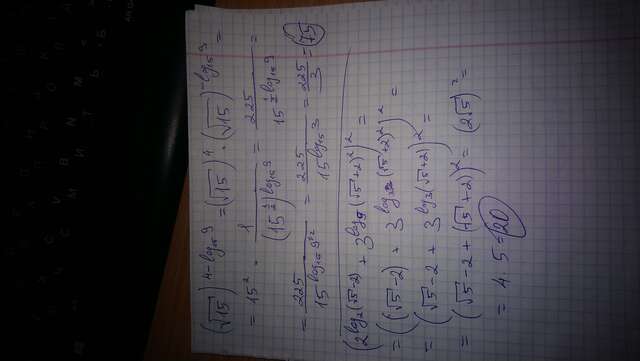 (√15)^(4-log₁₅9) = (√15)⁴ · (√15)^(-log₁₅9) =
= 15² · 1/(15^(1/2))^(log₁₅9) = 225/15^(1/2 log₁₅9) =
= 225/15^(log₁₅9^(1/2)) = 225/15^(log₁₅3) = 225/3 = 75
(2^(log₂(√5-2)) + 3^(log₉(√5+2)²))² =
= ((√5-2) + 3^(log₃²(√5+2)²))² =
= (√5-2 + 3^(log₃(√5+2)))² =
= (√5-2 + (√5+2))² = (2√5)² =
= 4 · 5 = 20